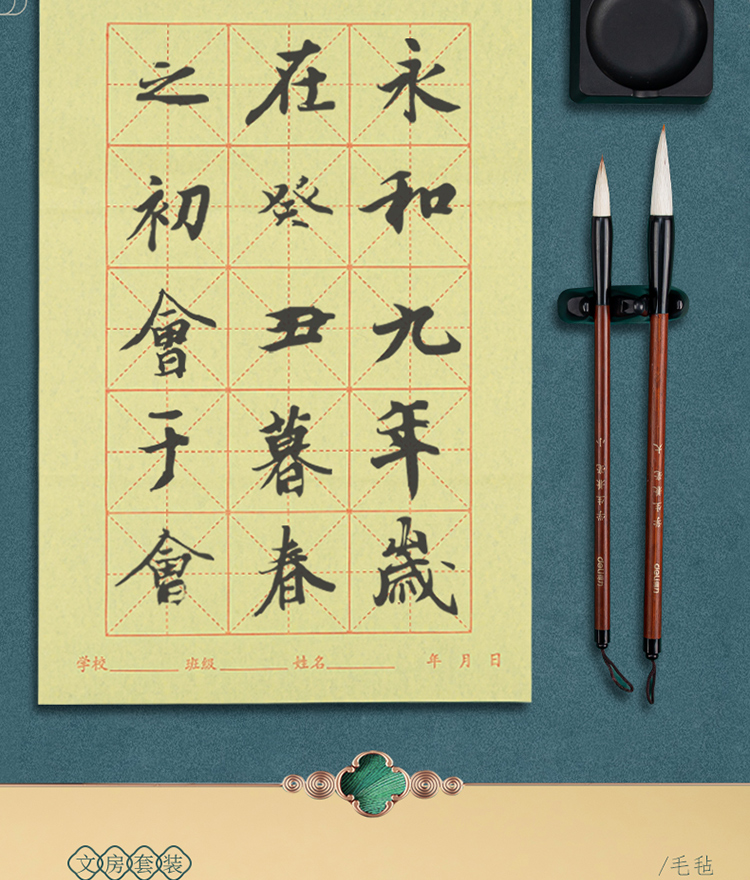 永和九年歲
在癸丑暮春
之初會于會
学校 班级 姓名 年 月 日
学生兼毫 小
学生兼毫 大
deli得力
deli得力
文房套装
/毛毡